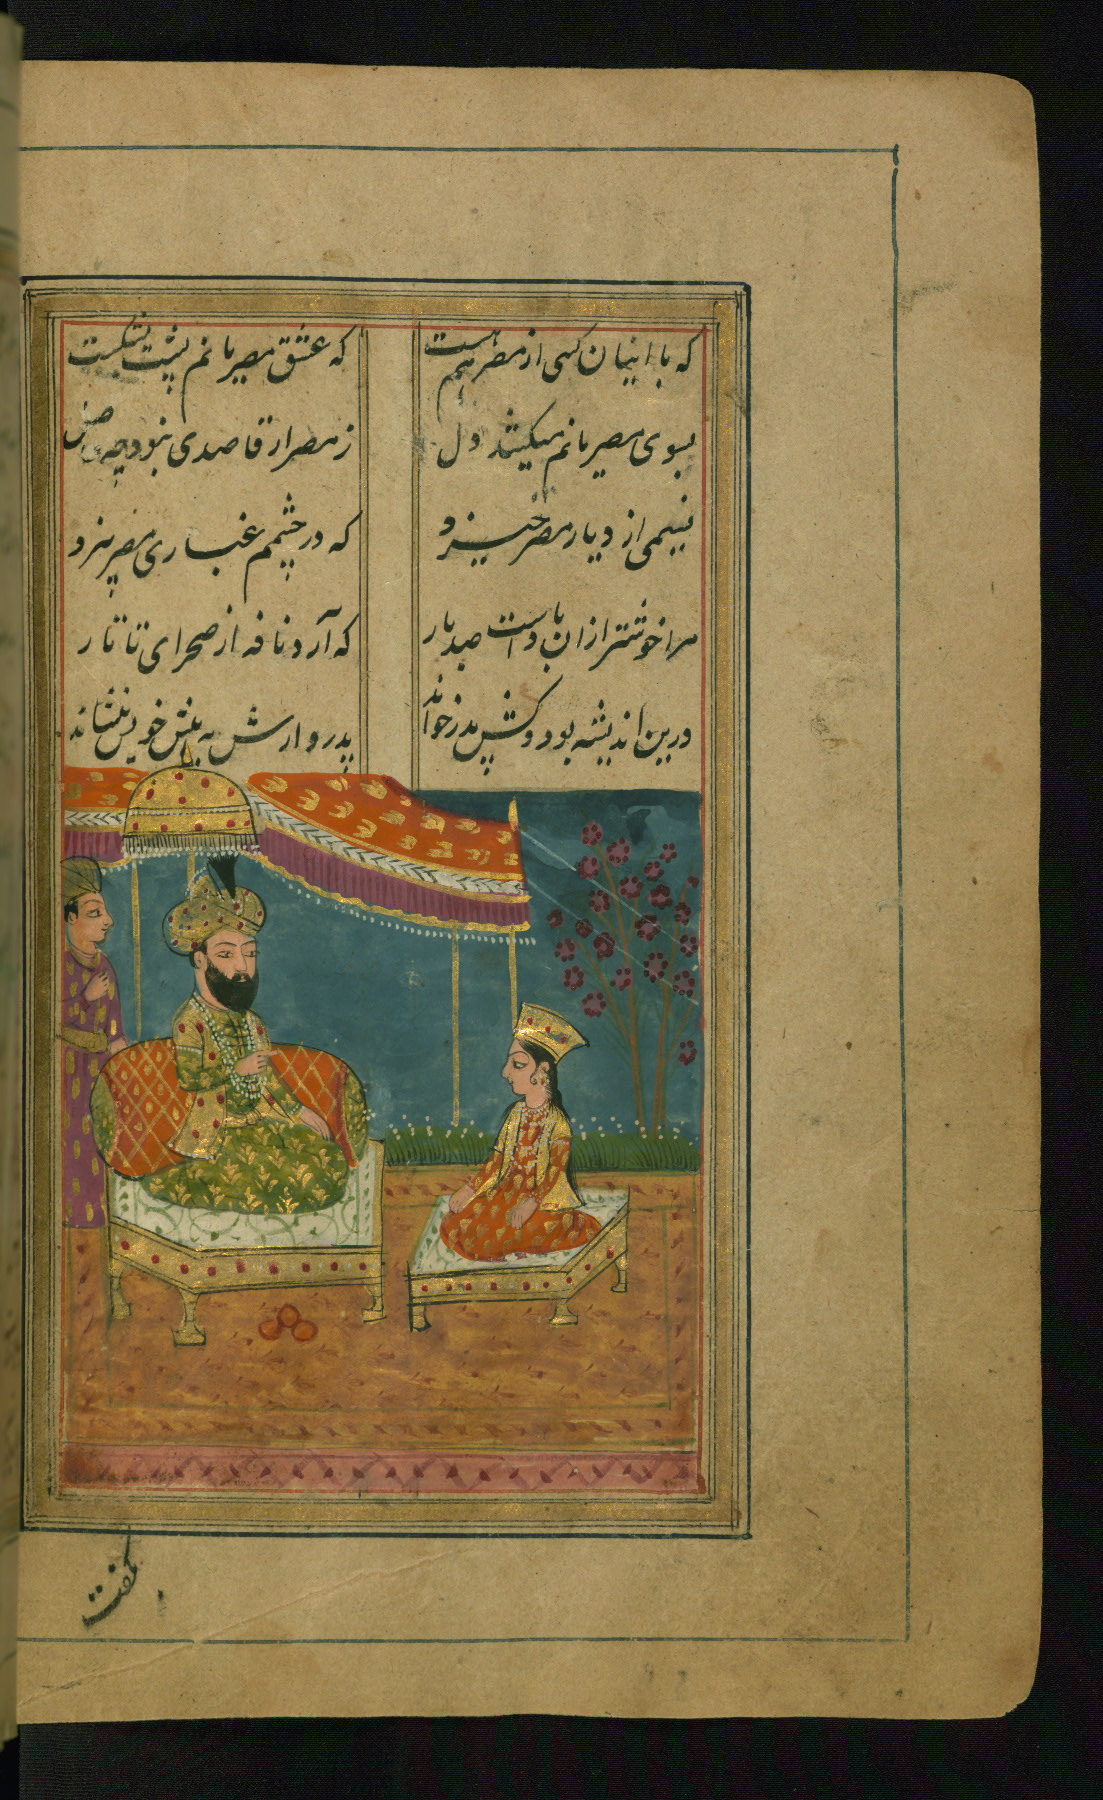 که با اینان کسی از مصر هم هست
که عشق مصریانم پشت بشکست
بسوی مصریانم میکشد دل
ز مصر ار قاصدی نبود چه حاصل
نسیمی از دیار مصر خیزد
که در چشمم غباری مصر بیزد
مرا خوشتر از ان باد است صد بار
که آرد نافه از صحرای تاتار
درین اندیشه بود و کش پدر خواند
پدر وارش به پیش خویش بنشاند
گفت